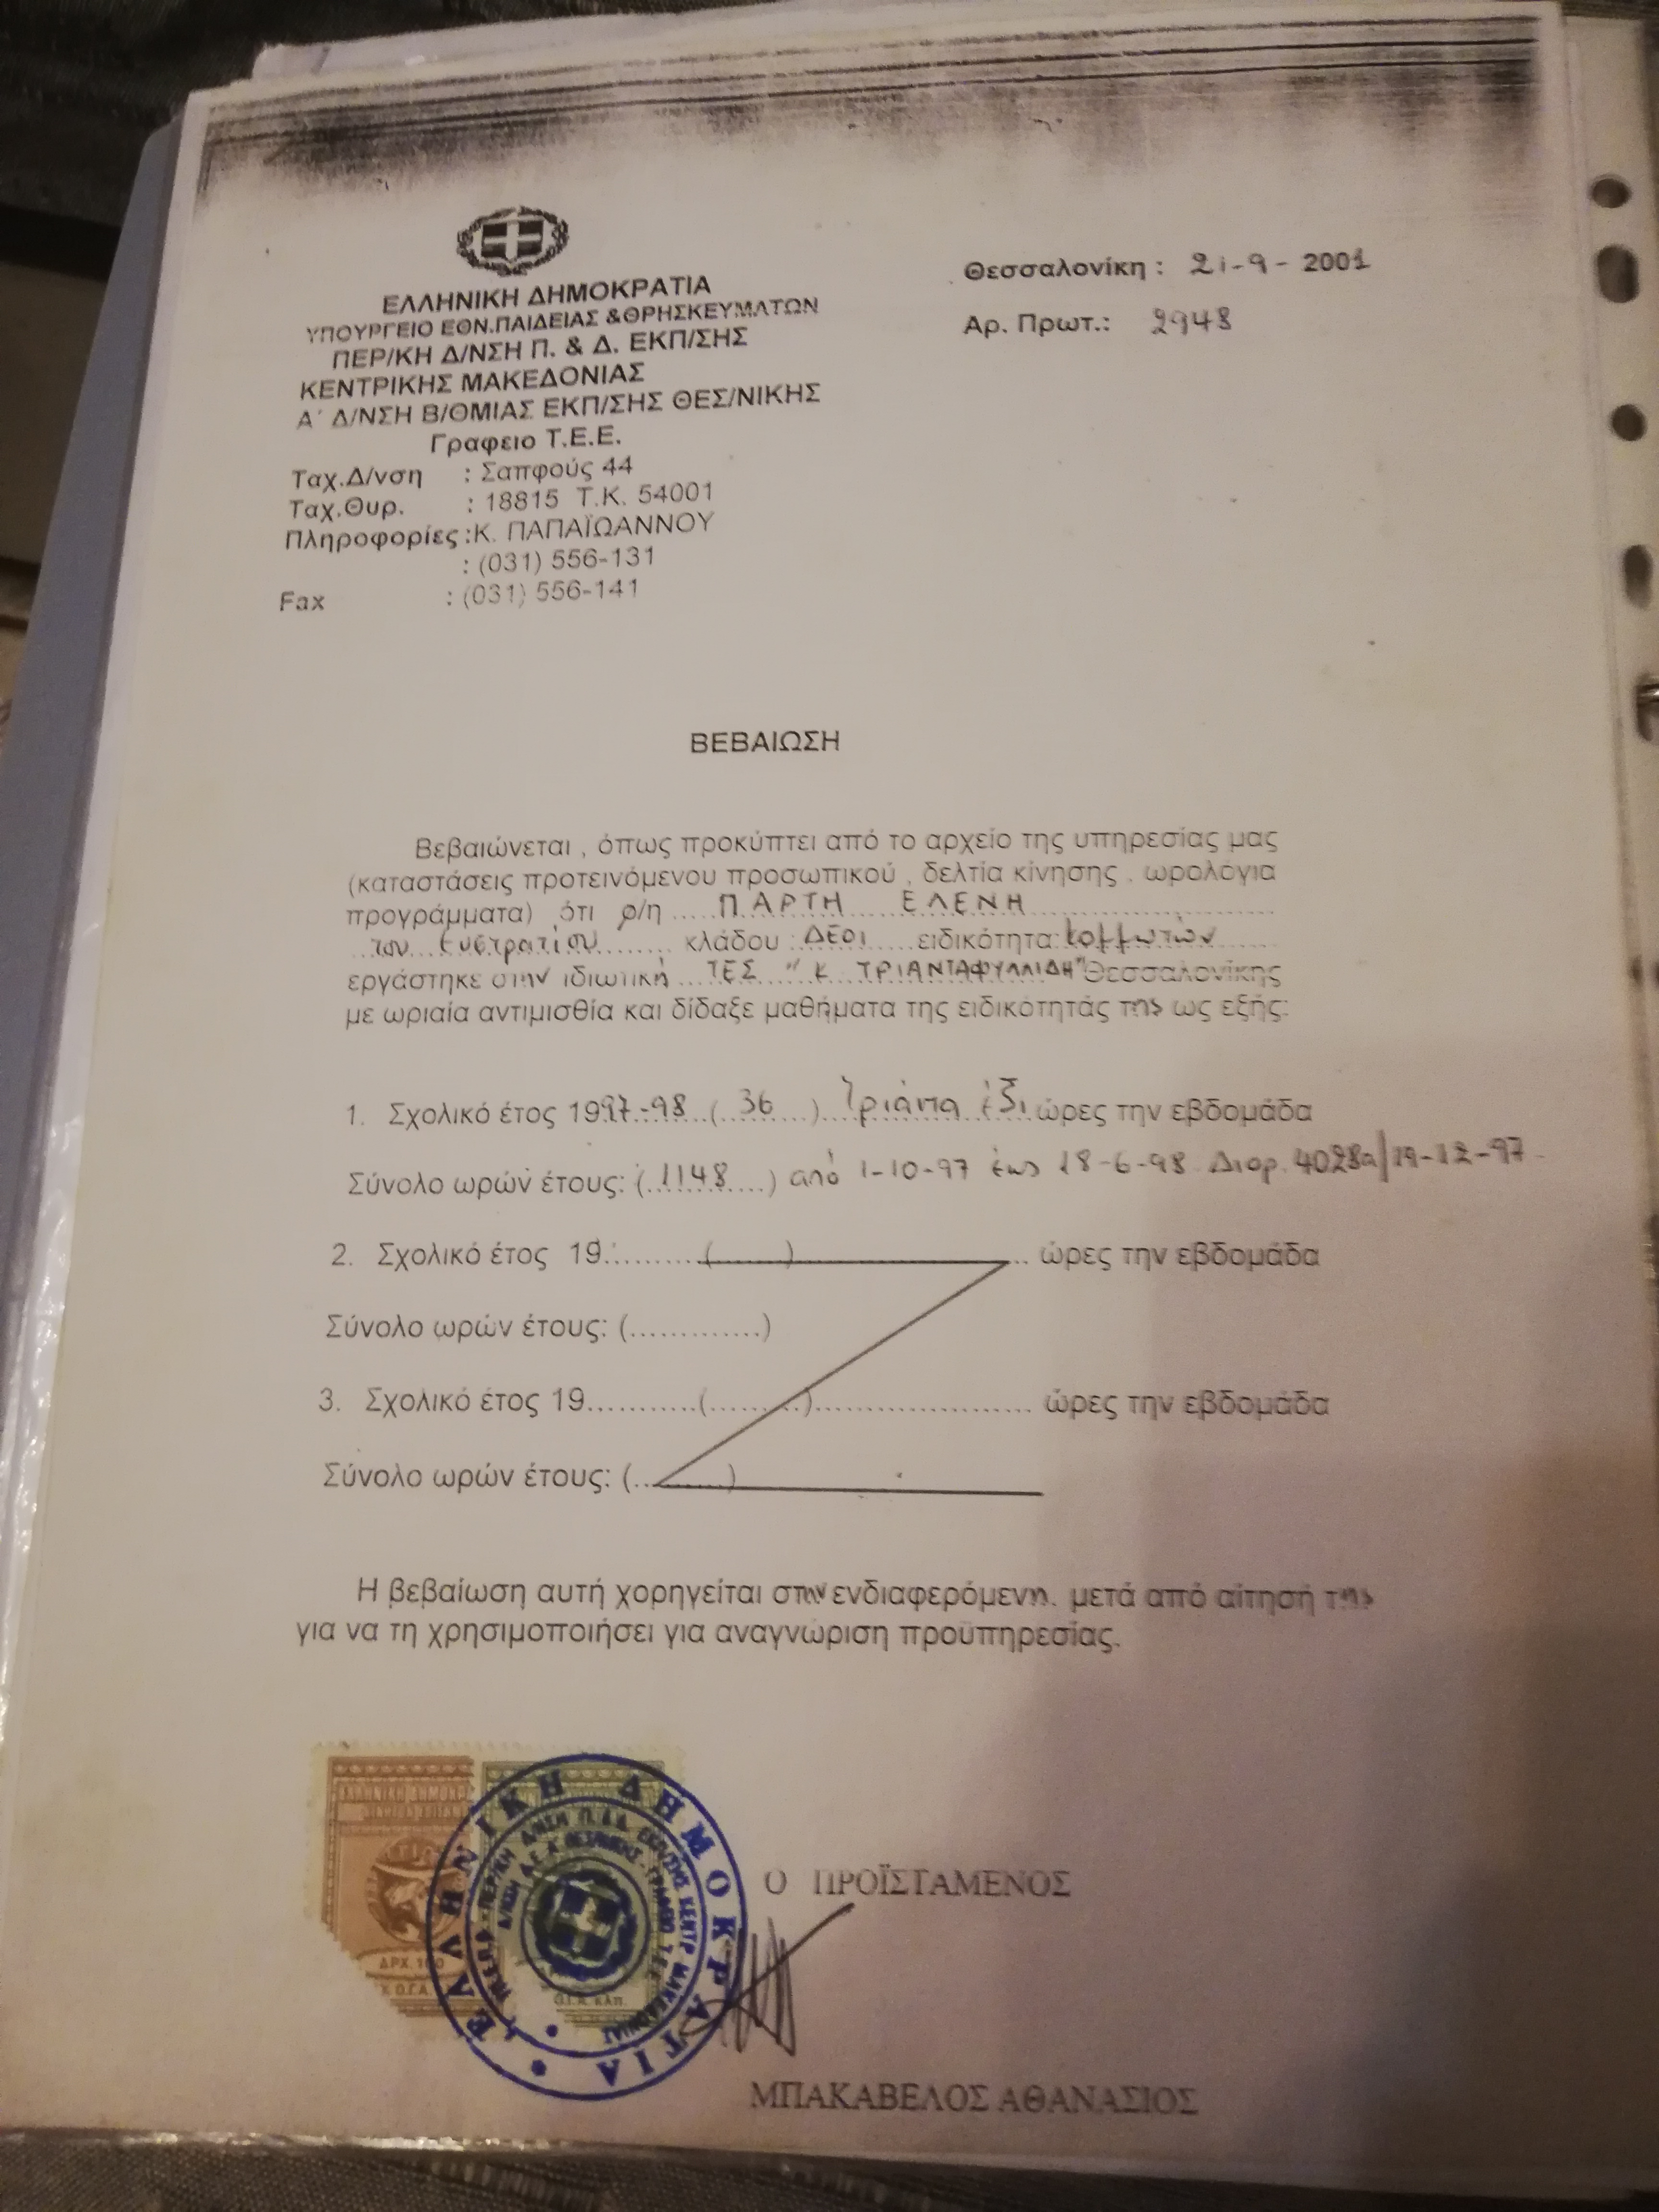 ΕΛΛΗΝΙΚΗ ΔΗΜΟΚΡΑΤΙΑ
ΥΠΟΥΡΓΕΙΟ ΕΘΝ.ΠΑΙΔΕΙΑΣ &ΘΡΗΣΚΕΥΜΑΤΩΝ
ΠΕΡ/ΚΗ Δ/ΝΣΗ Π. & Δ. ΕΚΠ/ΣΗΣ
ΚΕΝΤΡΙΚΗΣ ΜΑΚΕΔΟΝΙΑΣ
Α΄ Δ/ΝΣΗ Β/ΘΜΙΑΣ ΕΚΠ/ΣΗΣ ΘΕΣ/ΝΙΚΗΣ
Γραφειο Τ.Ε.Ε.
Ταχ.Δ/νση : Σαπφούς 44
Ταχ.Θυρ. : 18815 Τ.Κ. 54001
Πληροφορίες :Κ. ΠΑΠΑΪΩΑΝΝΟΥ
: (031) 556-131
Fax : (031) 556-141
Θεσσαλονίκη : 21-9- 2001
Αρ. Πρωτ.: 2948
ΒΕΒΑΙΩΣΗ
Βεβαιώνεται , όπως προκύπτει από το αρχείο της υπηρεσίας μας
(καταστάσεις προτεινόμενου προσωπικού , δελτία κίνησης , ωρολόγια
προγράμματα) ότι ο/η ΠΑΡΤΗ ΕΛΕΝΗ
του Ευστρατίου κλάδου : ΔΕ01 ειδικότητα: κομμωτών
εργάστηκε στην ιδιωτική ΤΕΣ "Κ ΤΡΙΑΝΤΑΦΥΛΛΙΔΗ" Θεσσαλονίκης
με ωριαία αντιμισθία και δίδαξε μαθήματα της ειδικότητάς της ως εξής:
1. Σχολικό έτος 1997-98 (36) Τριάντα έξι ώρες την εβδομάδα
Σύνολο ωρών έτους: (1148) από 1-10-97 έως 18-6-98 Διορ. 4028α/19-12-97
2. Σχολικό έτος 19..........(........) ώρες την εβδομάδα
Σύνολο ωρών έτους: (.............)
3. Σχολικό έτος 19...........(..........)...................... ώρες την εβδομάδα
Σύνολο ωρών έτους: (..........)
Η βεβαίωση αυτή χορηγείται στην ενδιαφερόμενη. μετά από αίτησή της
για να τη χρησιμοποιήσει για αναγνώριση προϋπηρεσίας.
ΕΛΛΗΝΙΚΗ ΔΗΜΟΚΡΑΤΙΑ
ΔΡΧ. 100
Ο.Γ.Α.
Ο ΠΡΟΪΣΤΑΜΕΝΟΣ
ΜΠΑΚΑΒΕΛΟΣ ΑΘΑΝΑΣΙΟΣ